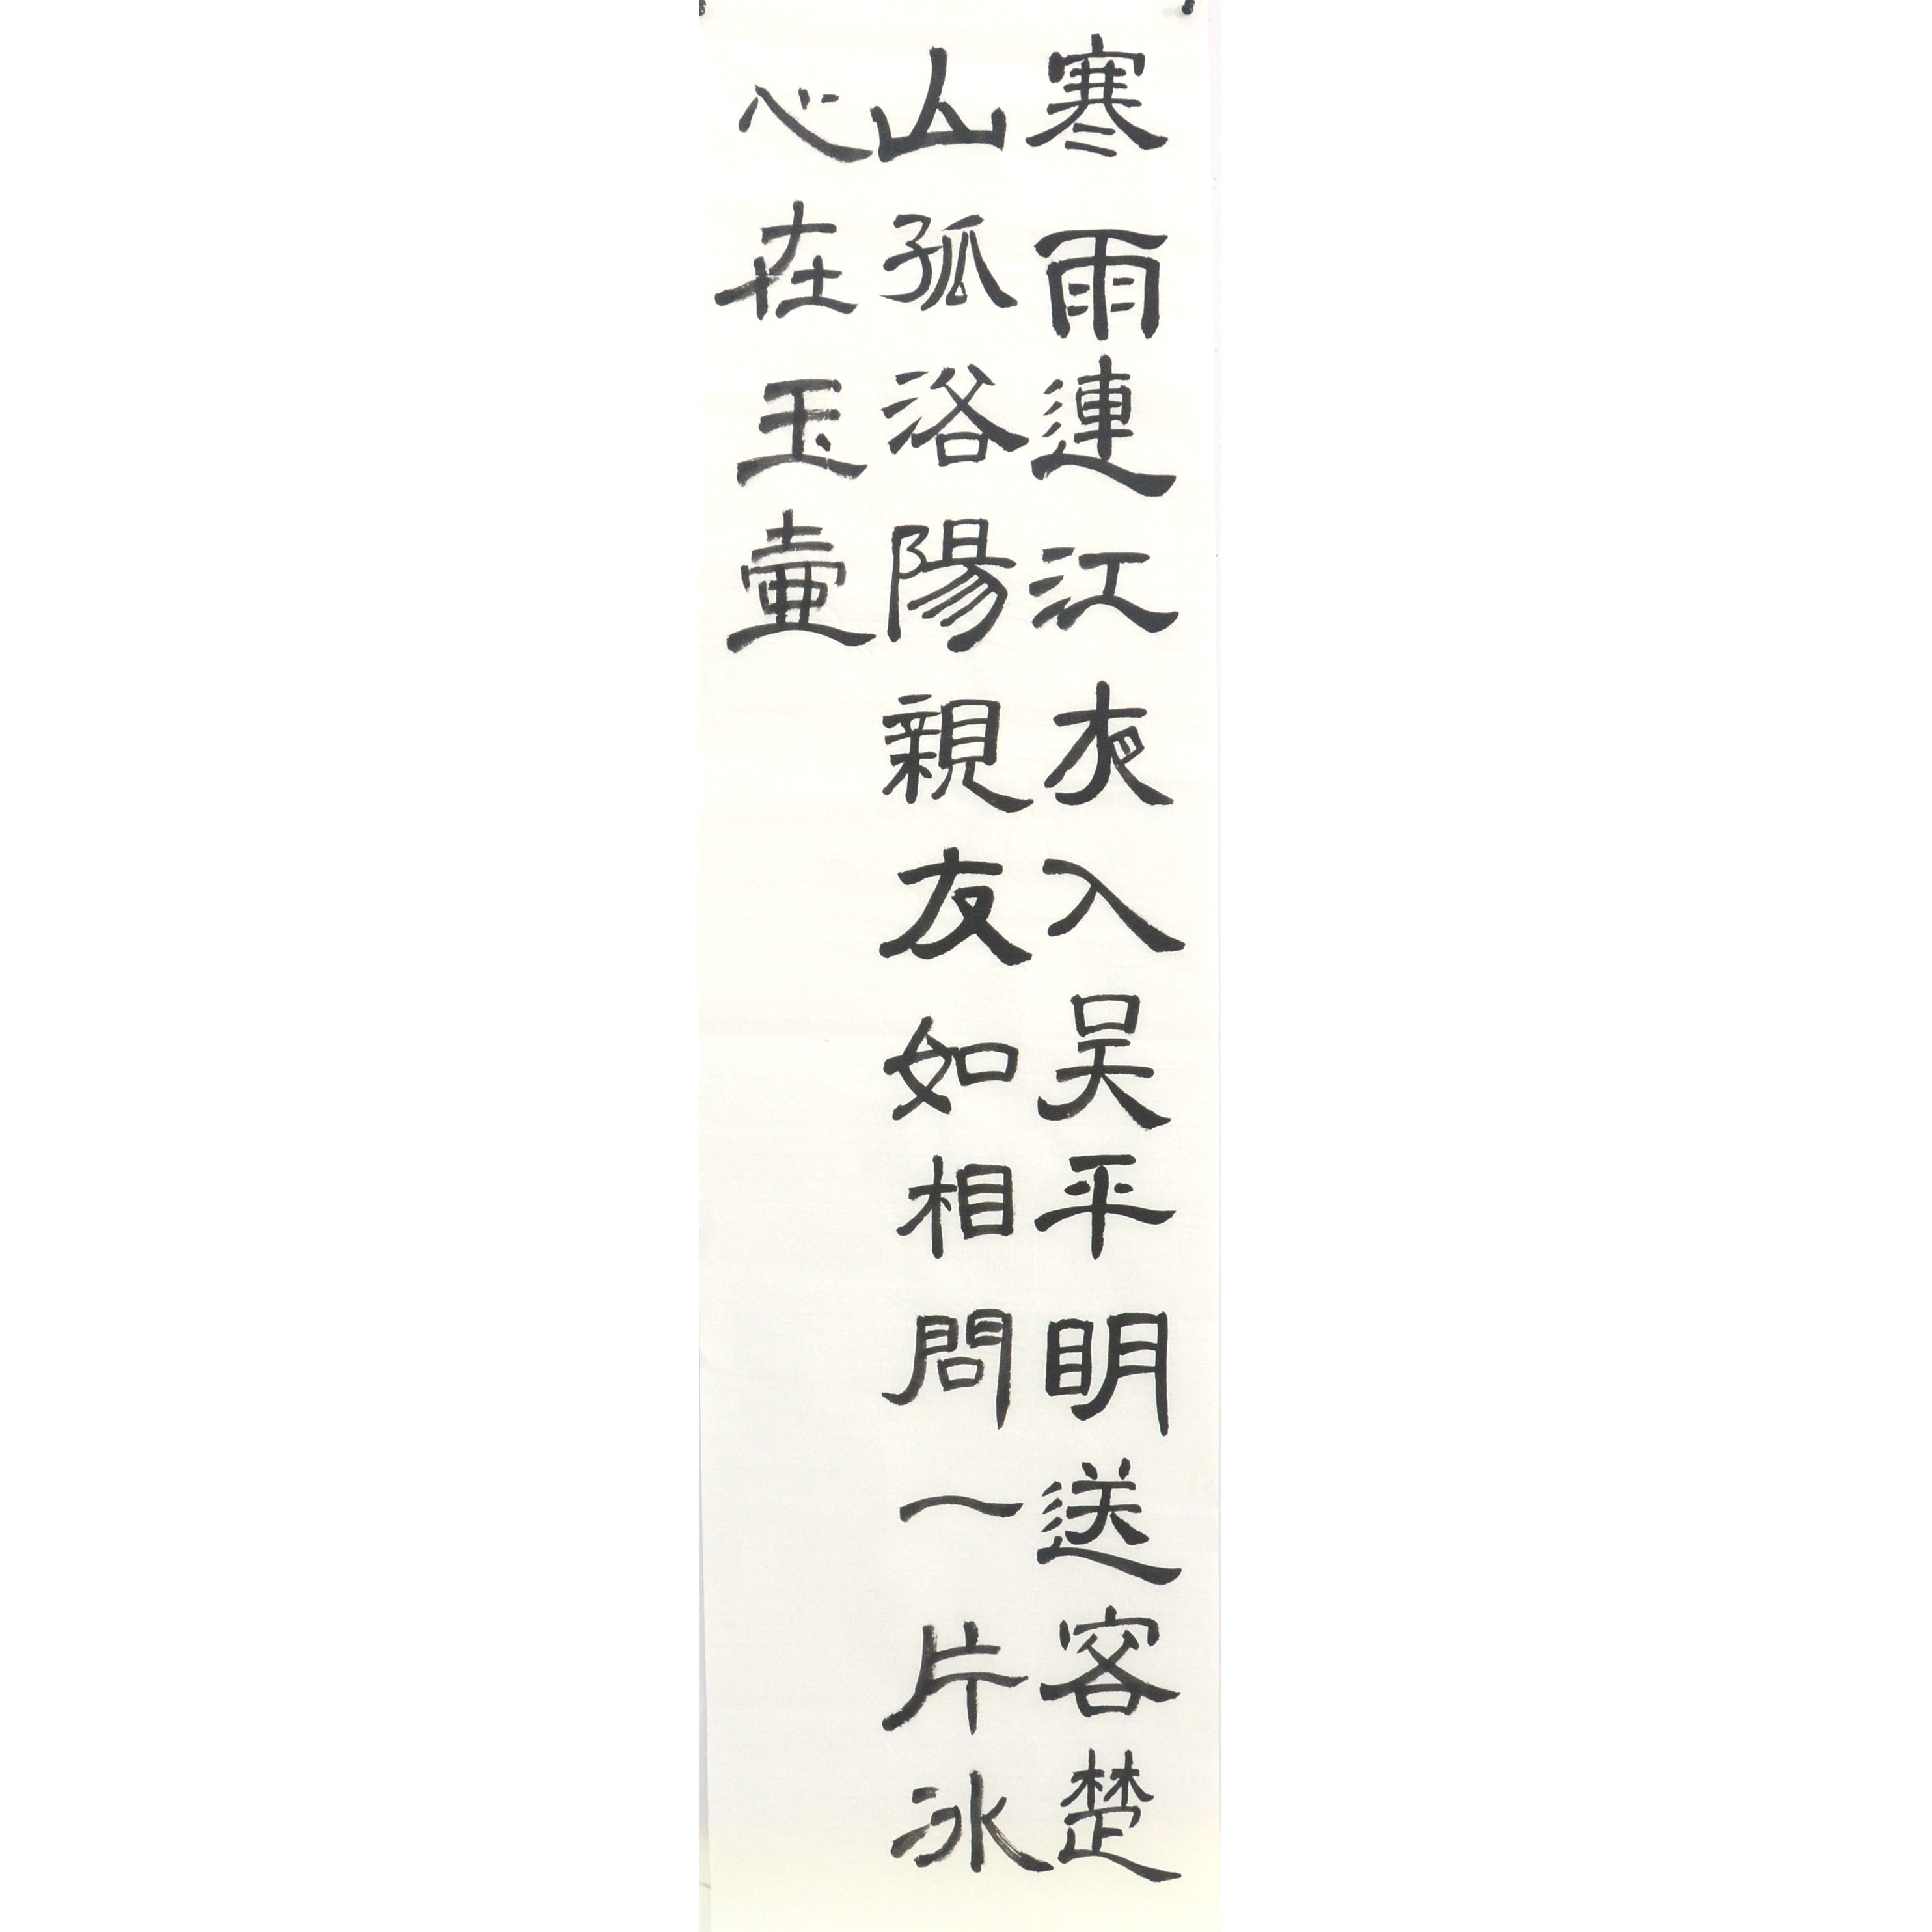 寒雨連江夜入吴平明送客楚
山孤洛陽親友如相問一片冰
心在玉壺